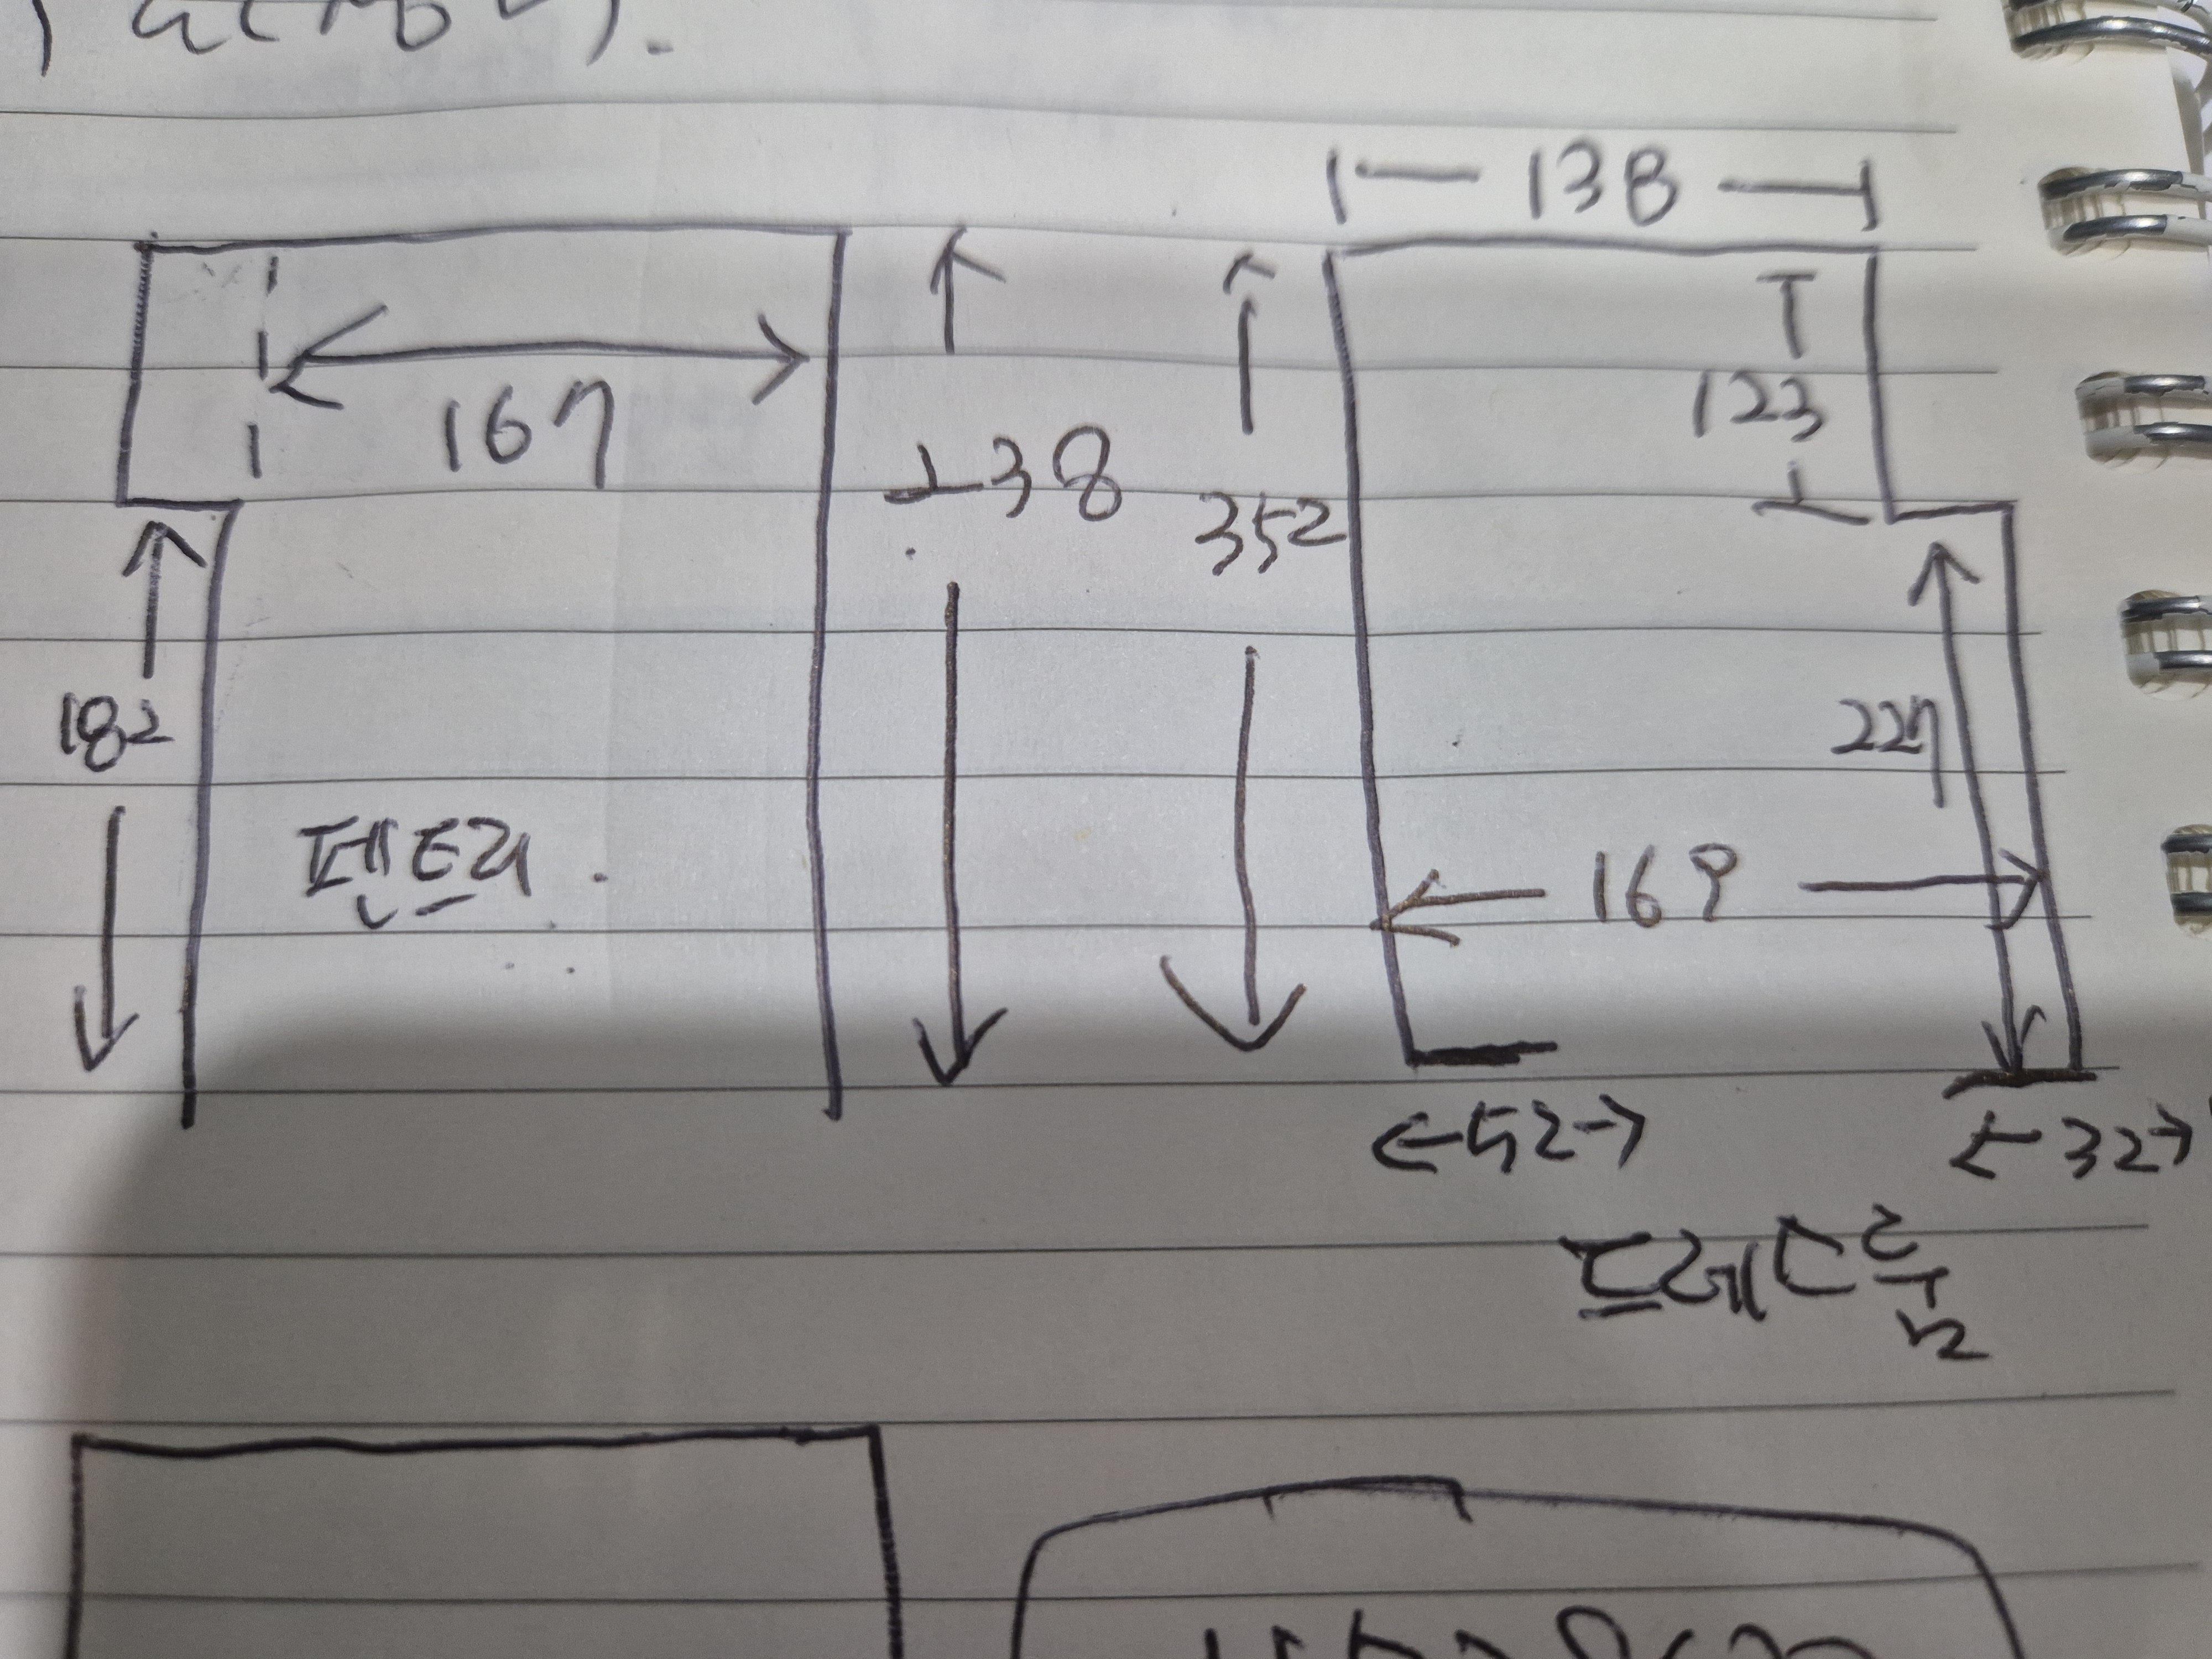 138
167
123
238
352
182
227
펜트리
169
52
32
드레스룸